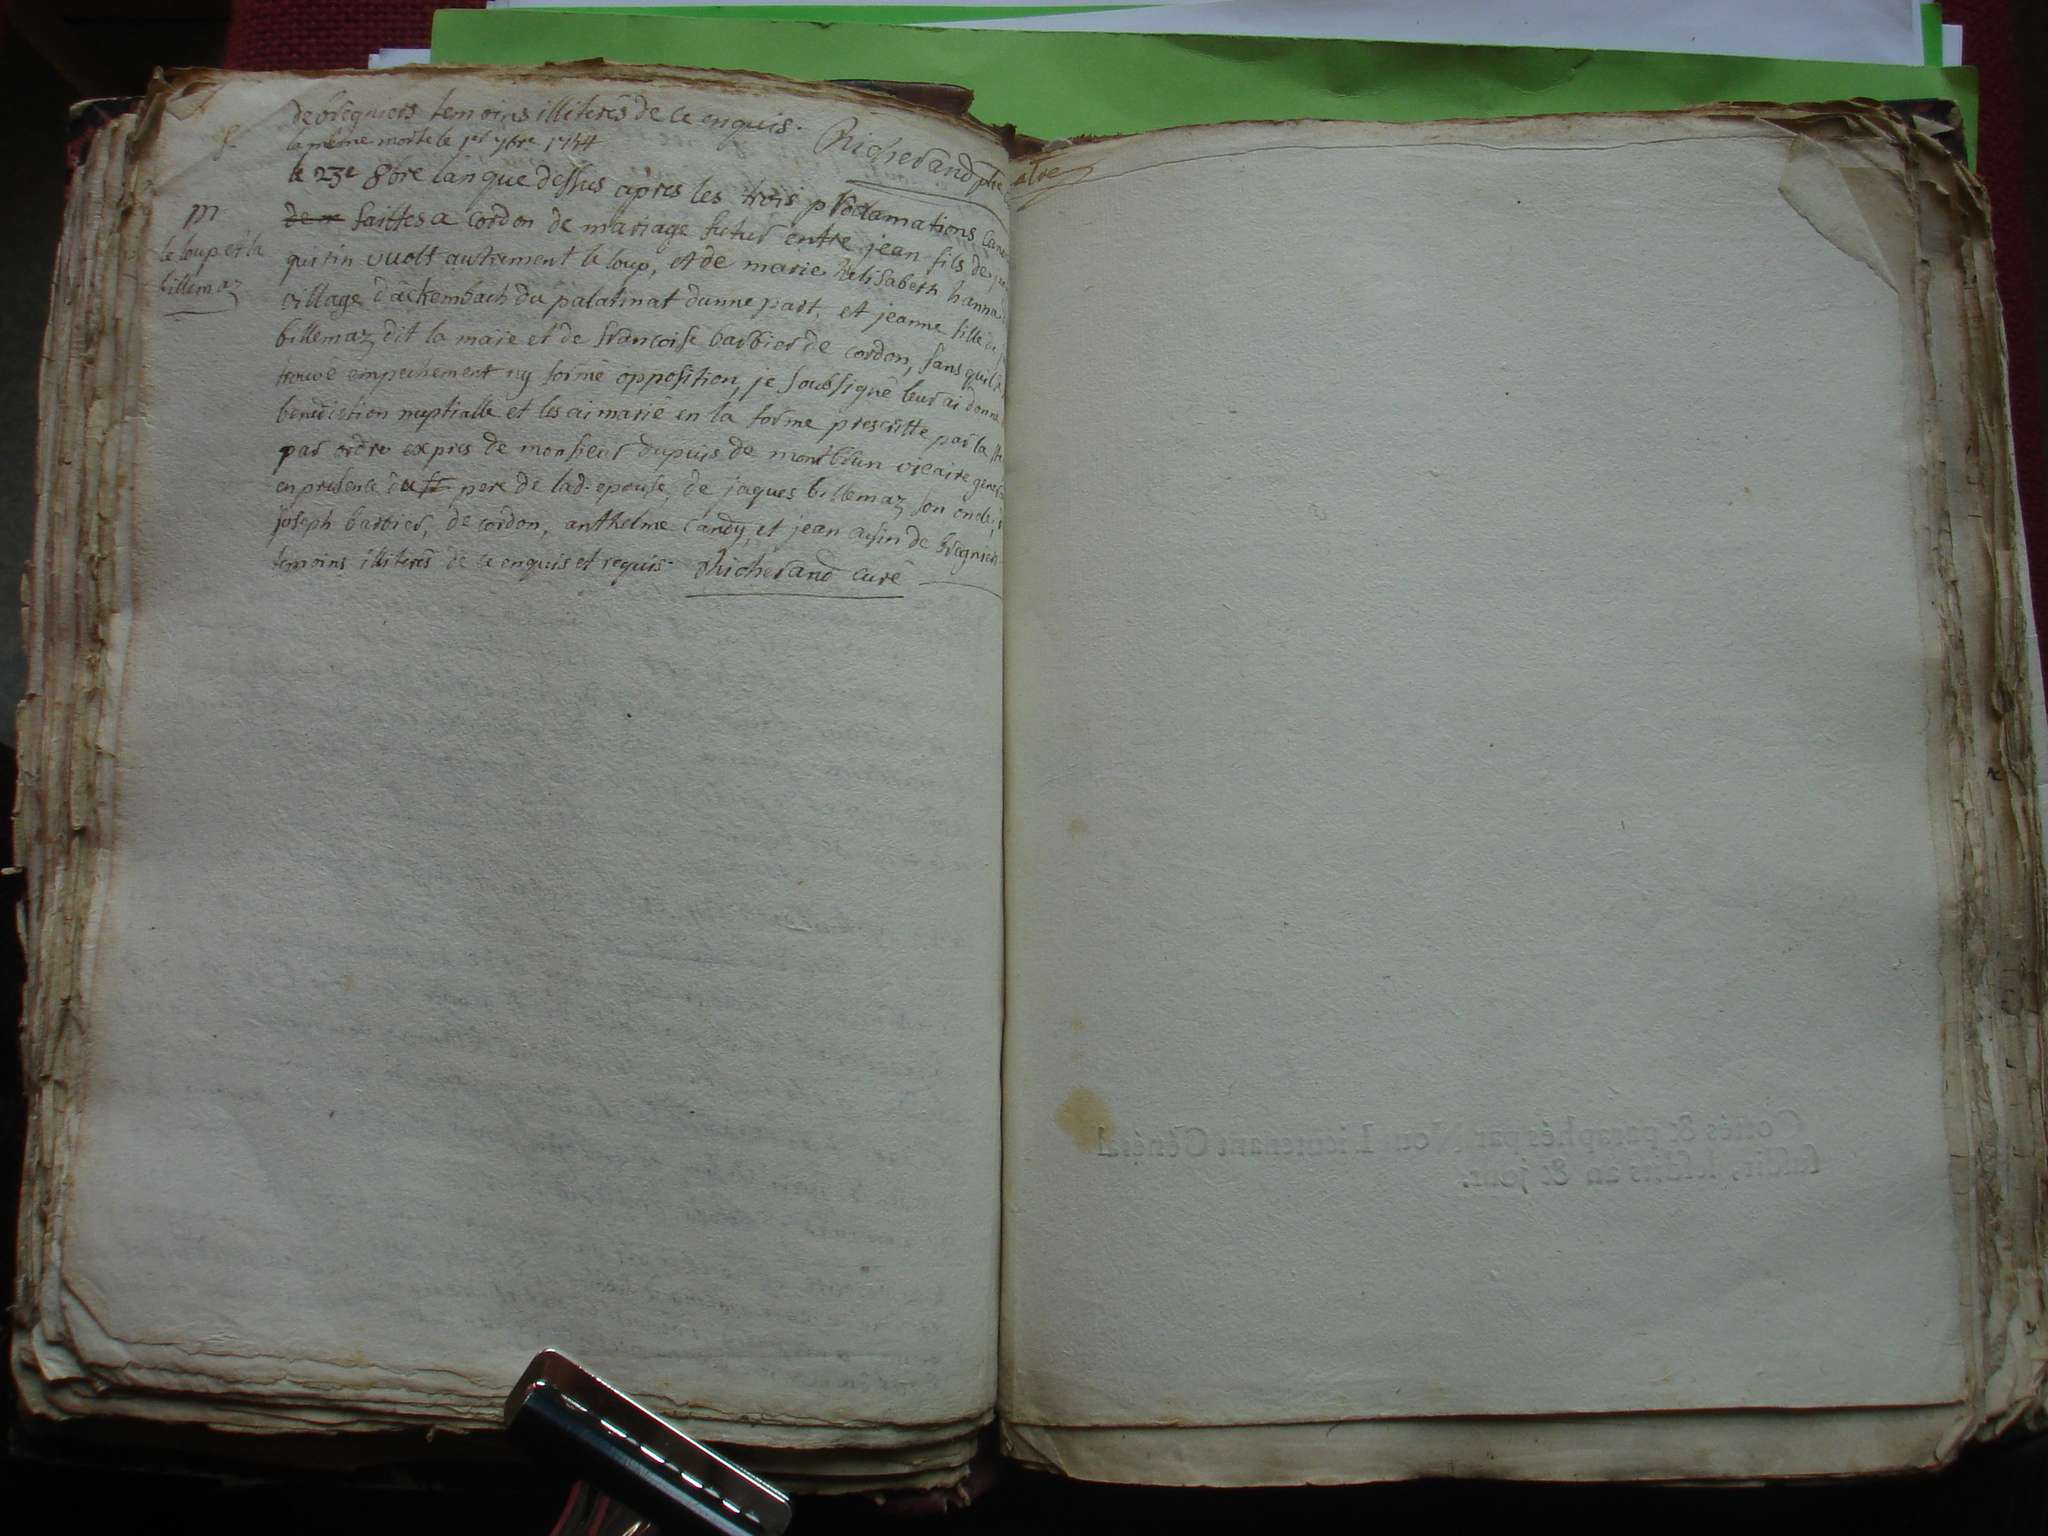 de bregniers temoins illiterés de ce enquis. Richerand ptre
la même morte le 1er 7bre 1754
le 23e 8bre l'an que dessus apres les trois proclamations
m
le loup et la
billemaz
de faittes a cordon de mariage futur entre jean fils de
quirin vuolf autrement le loup, et de marie helisabeth hanna
village dackembach du palatinat dunne part, et jeanne fille de
billemaz dit la maïe et de françoise barbier de cordon, sans quil
trouvé empechement ny formé opposition, je soubsigné leur ai donné
benediction nuptialle et les ai marié en la forme prescritte par la
par ordre expres de monsieur dupuis de montbrun vicaire general
en presence du pere de lad. epouse, de jaques billemaz son oncle,
joseph barbier, de cordon, anthelme candy, et jean de bregniers
temoins illiterés de ce enquis et requis. Richerand curé
Cottés & paraphés par Nous Lieutenant Général
susdit, lesdits an & jour.